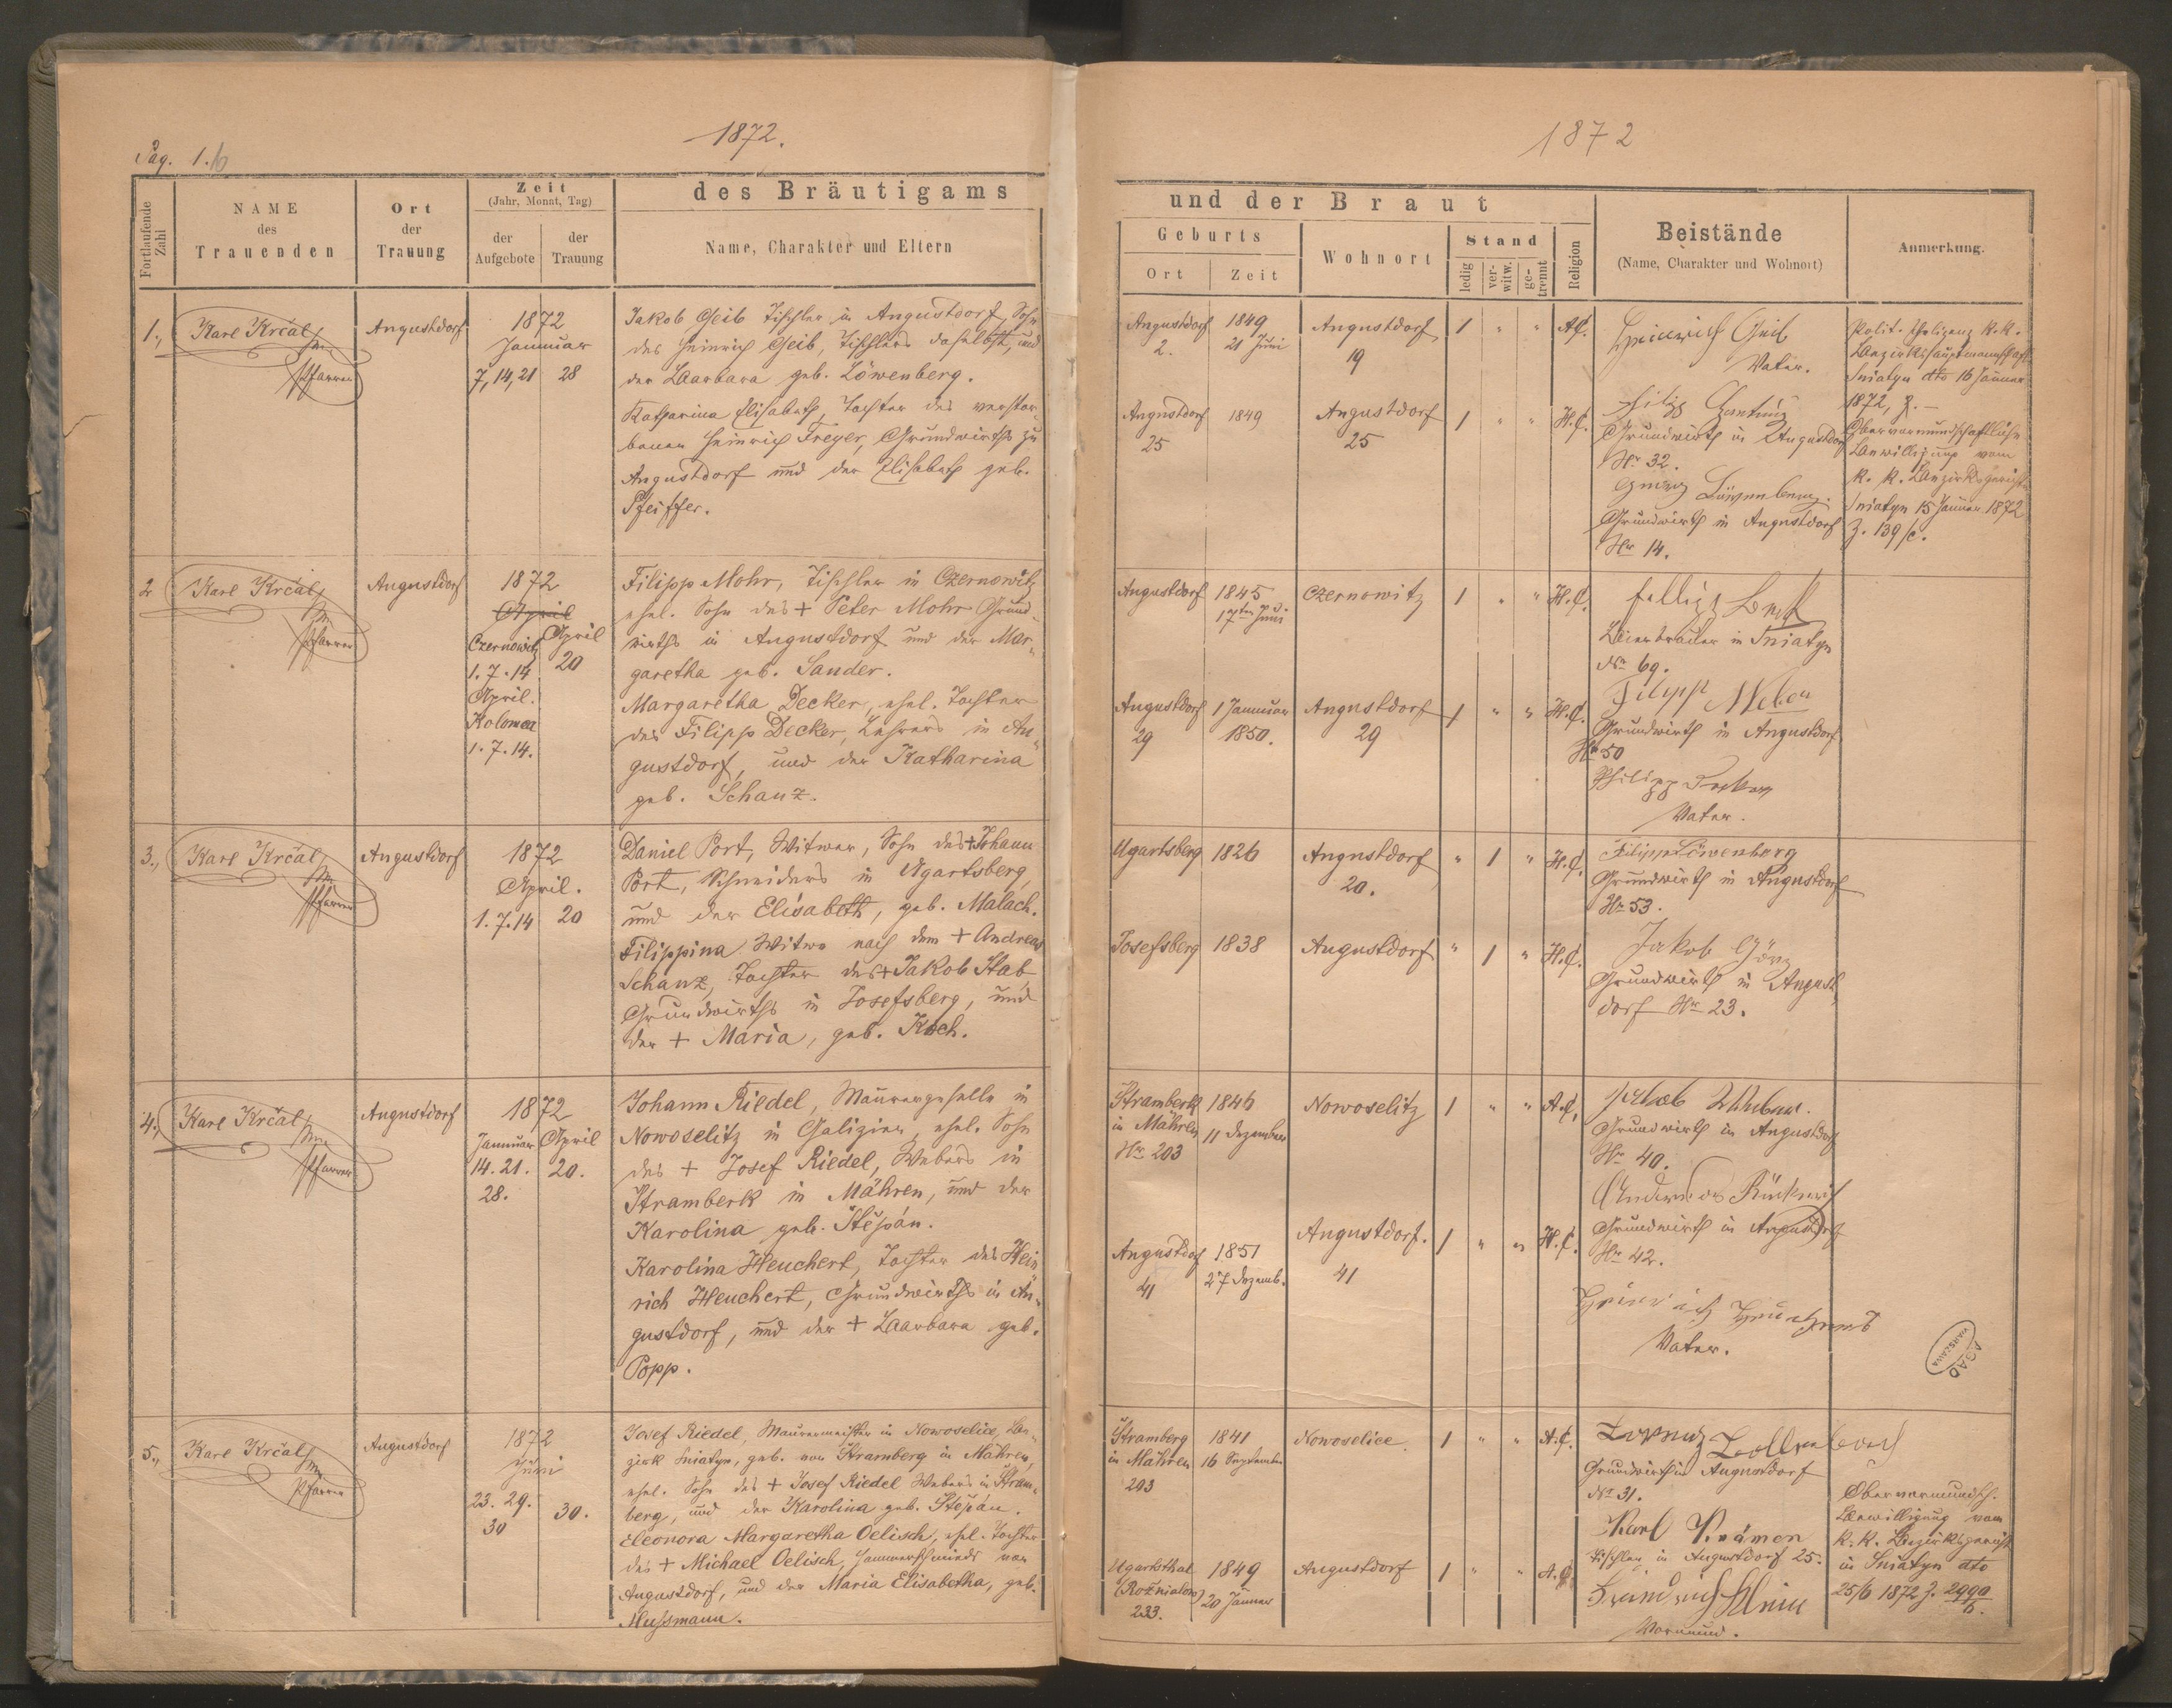 Pag. 1.
1872.
1872
Fortlaufende Zahl
NAME des Trauenden
Ort der Trauung
Zeit
(Jahr, Monat, Tag)
der Aufgebote
der Trauung
des Bräutigams
Name, Charakter und Eltern
und der Braut
Geburts
Ort
Zeit
Wohnort
Stand
ledig
ver-witw.
ge-trennt
Religion
Beistände
(Name, Charakter und Wohnort)
Anmerkung.
1.,
Karl Krčal
Pfarrer
Augustdorf
1872
Januar
7, 14, 21
28
Jakob Geib Tischler in Augustdorf, Sohn
des Heinrich Geib, Tischlers daselbst, und
der Barbara geb. Löwenberg.
Katharina Elisabeth, Tochter des verstor-
benen Heinrich Freyer, Grundwirths zu
Augustdorf und der Elisabeth geb.
Pfeiffer.
Augustdorf
2.
1849
21 Juni
Augustdorf
19
1 " "
A.C.
Augustdorf
25
1849
Augustdorf
25
1 " "
H.C.
Heinrich Geib
Vater.
Filipp
Grundwirth in Augustdorf
Nr 32.
Löwenberg.
Grundwirth in Augustdorf
Nr 14.
Polit. Ehelizenz k. k.
Bezirkshauptmannschaft
Sniatyn dto 16 Januar
1872, Z. –
Obervormundschaftliche
Bewilligung vom
k. k. Bezirksgericht
Sniatyn 15 Januar 1872
Z. 139/c.
2
Karl Krčal
Pfarrer
Augustdorf
1872
April
Czernowitz
1. 7. 14
April.
Kolomea
1. 7. 14.
April
20
Filipp Mohr, Tischler in Czernowitz
ehel. Sohn des + Peter Mohr Grund-
wirths in Augustdorf und der Mar-
garetha geb. Sander.
Margaretha Decker, ehel. Tochter
des Filipp Decker, Lehrers in Au-
gustdorf, und der Katharina
geb. Schanz.
Augustdorf
1845
17ten Juni
Czernowitz
1 " "
H.C.
Augustdorf
29
1 Januar
1850.
Augustdorf
29
1 " "
H.C.
Bierbrauer in Sniatyn
Nr 69.
Filipp
Grundwirth in Augustdorf
Nr 50
Philipp Decker
Vater.
3.,
Karl Krčal
Pfarrer
Augustdorf
1872
April.
1. 7. 14
20
Daniel Port, Witwer, Sohn des + Johann
Port, Schneiders in Ugartsberg,
und der Elisabeth, geb. Malach.
Filippina Witwe nach dem + Andreas
Schanz, Tochter des + Jakob Stab
Grundwirths in Josefsberg, und
der + Maria, geb. Koch.
Ugartsberg
1826
Augustdorf
20.
" 1 "
H.C.
Josefsberg
1838
Augustdorf
" 1 "
H.C.
Filipp Löwenberg
Grundwirth in Augustdorf
Nr 53.
Jakob Görz
Grundwirth in August-
dorf Nr 23.
4.,
Karl Krčal
Pfarrer
Augustdorf
1872
Januar
14. 21.
28.
April
20.
Johann Riedel, Maurergeselle in
Nowoselitz in Galizien, ehel. Sohn
des + Josef Riedel, Webers in
Stramberk in Mähren, und der
Karolina geb. Štěpán.
Karolina Heuchert, Tochter des Hein-
rich Heuchert, Grundwirths in Au-
gustdorf, und der + Barbara geb.
Popp.
Stramberk
in Mähren
Nr 203
1846
11 Dezember
Nowoselitz
1 " "
A.C.
Augustdorf
41
1851
27 Dezemb.
Augustdorf.
41
1 " "
H.C.
Jakob
Grundwirth in Augustdorf
Nr 40.
Grundwirth in Augustdorf
Nr 42.
Heinrich Heuchert
Vater.
AGAD
WARSZAWA
5.,
Karl Krčal
Pfarrer
Augustdorf
1872
Juni
23. 29.
30
30.
Josef Riedel, Maurermeister in Nowoselice, Be-
zirk Sniatyn, geb. von Stramberg in Mähren,
ehel. Sohn des + Josef Riedel Webers in Stram-
berg, und der Karolina geb. Štěpán.
Eleonora Margaretha Oelisch, ehel. Tochter
des + Michael Oelisch, Hammerschmieds von
Augustdorf, und der Maria Elisabetha, geb.
Mussmann.
Stramberg
in Mähren
203
1841
16 September
Nowoselice
1 " "
A.C.
Ugartsthal
(Rožniatow)
233.
1849
20 Januar
Augustdorf
1 " "
A.C.
Lorenz
Grundwirth in Augustdorf
Nr 31.
Karl Krämer
Tischler in Augustdorf 25.
Heinrich Klein
Vormund.
Obervormundsch.
Bewilligung vom
k. k. Bezirksgericht
in Sniatyn dto
25/6 1872 Z. 2990